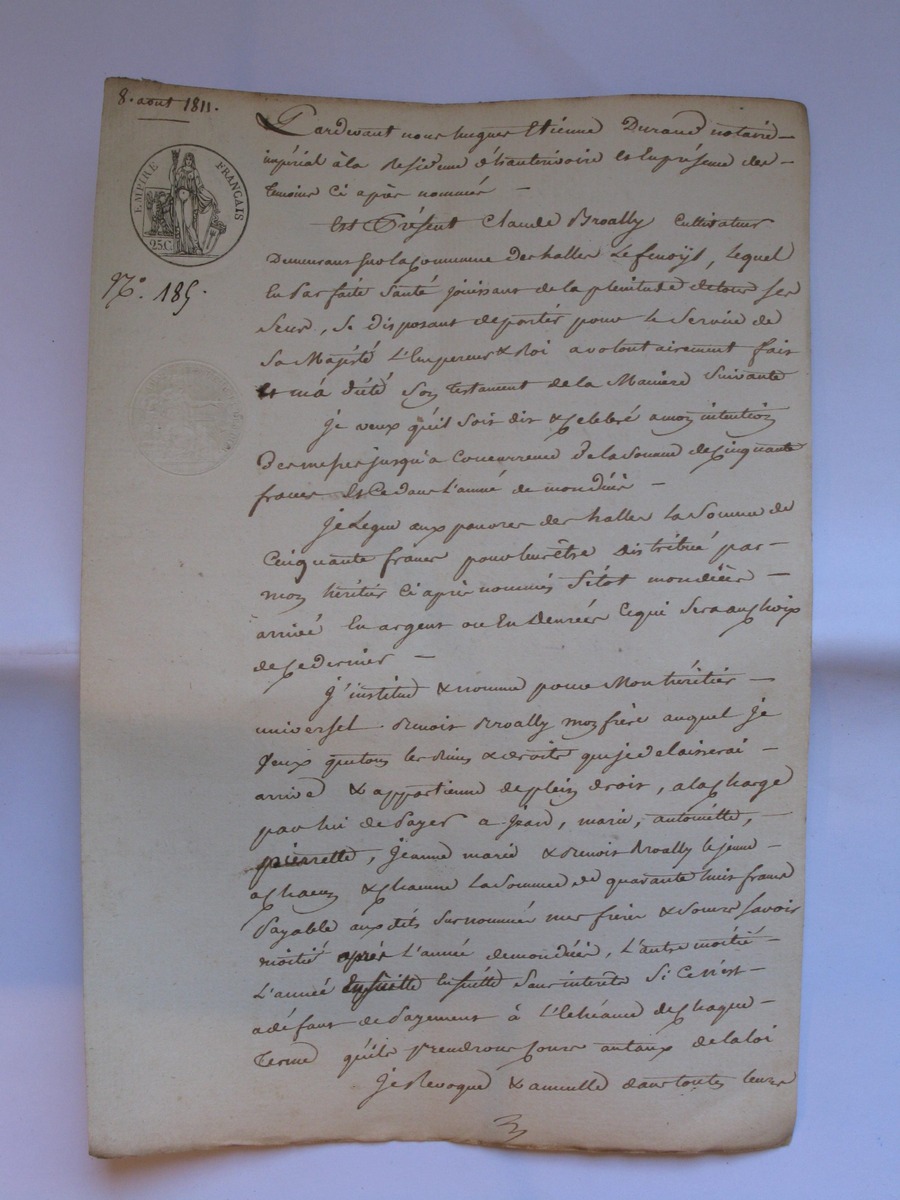 8. aout 1811.
EMPIRE FRANÇAIS
25C.
N.° 185.
Pardevant nous hugues Etienne Durand notaire
impérial à la Residence d'hauterivoire Et En présence des
temoins Ci après nommés
Est Présent Claude Broally Cultivateur
Demeurant sur la Commune des halles Le fenoÿl, Lequel
En Parfaite Santé jouissant de la plenitude de tous ses
Sens, Se disposant de porter pour le Service de
Sa Majesté L'Empereur & Roi a volontairement fait
Et m'a dicté Son testament de la Maniere Suivante
Je veux qu'il Soit dit & Celebré a mon intention
Des messes jusqu'a Concurrence de la Somme de Cinquante
francs Et Ce dans L'année de mon décès
Je Legue aux pauvres des halles La Somme de
Cinquante francs pour leur être distribué par
mon héritier Ci après nommé Sitot mon décès
arrivé En argent ou En Denrées Ce qui Sera au Choix
de Ce dernier
J'institue & nomme pour Mon héritier
universel Benoit Broally mon frère auquel je
veux que tous les Biens & droits que je delaisserai
arrive & appartienne de plein droit, a la Charge
par lui de Payer a jean, marie, antoinette,
pierrette, jeanne marie & Benoit Broally le jeune
a Chacun & Chacune La Somme de quarante huit francs
Payable aux dits Surnommés mes frères & Soeurs Savoir
moitié après L'année de mon décès, L'autre moitié
L'année Ensuitte Sans interets Si Ce n'est
a défaut de Payement à L'Echéance de Chaque
Terme qu'ils prendront Cours au taux de la loi
Je Revoque & annulle dans toutes leurs